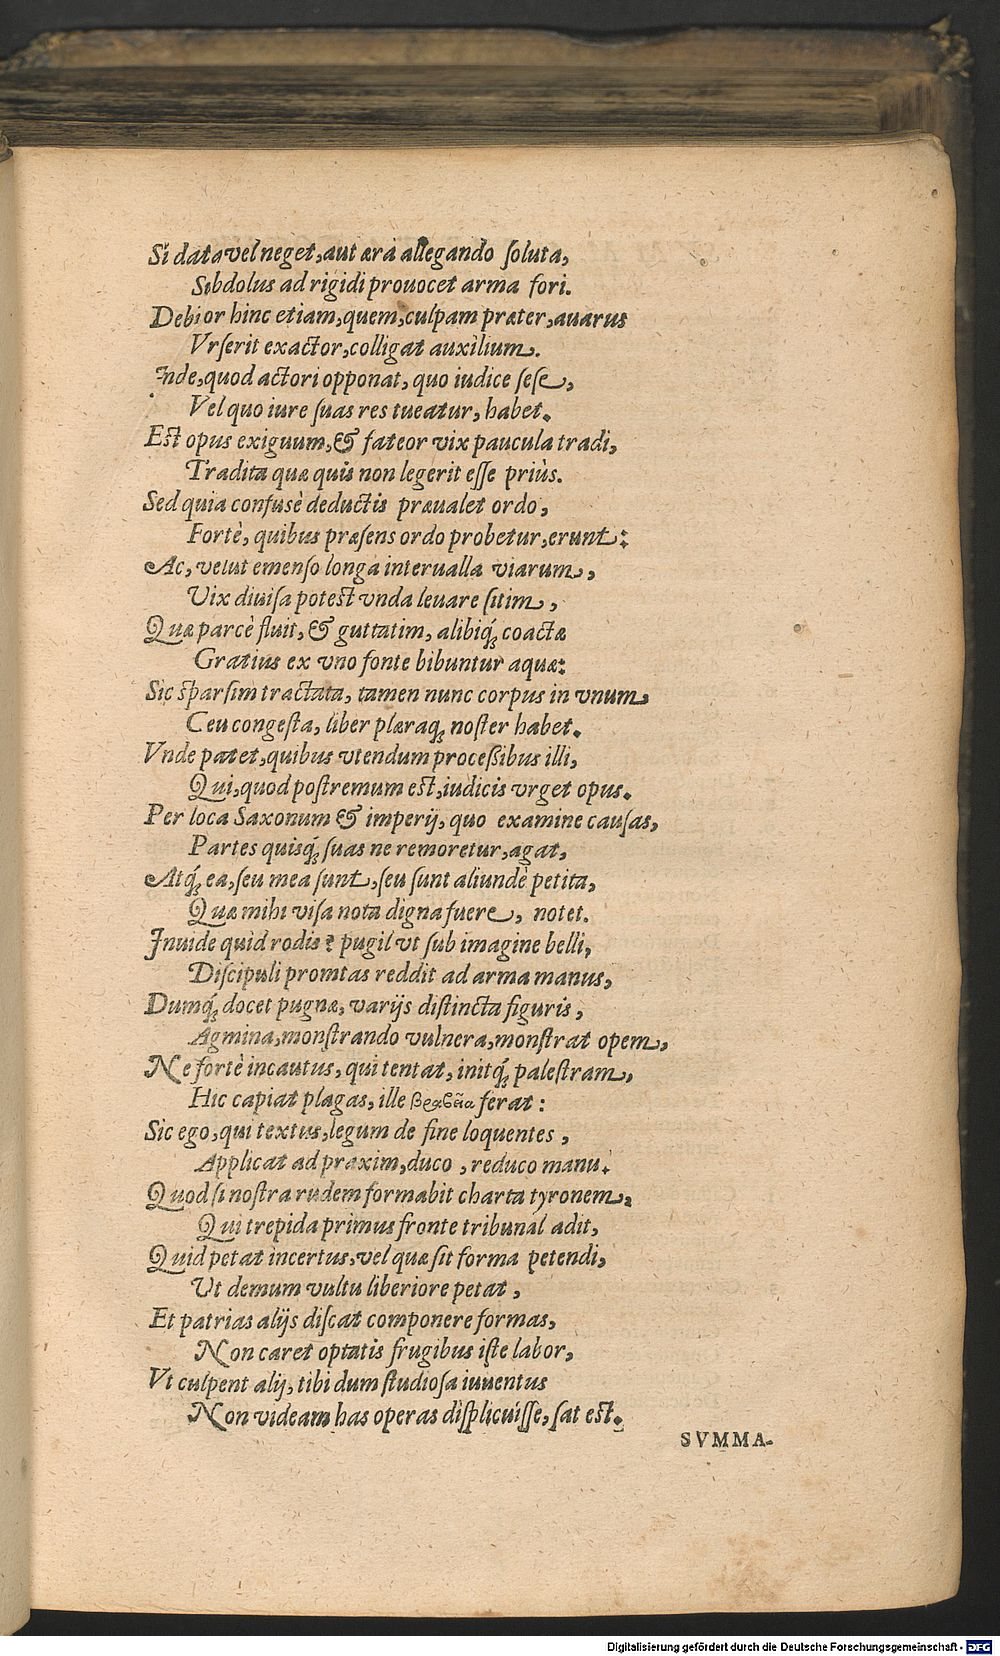 Si data vel neget, aut æra allegando ſoluta,
Subdolus ad rigidi prouocet arma fori.
Debitor hinc etiam, quem, culpam præter, auarus
Vrſerit exactor, colligat auxilium.
Inde, quod actori opponat, quo iudice ſeſe,
Vel quo iure ſuas res tueatur, habet.
Eſt opus exiguum, & fateor vix paucula tradi,
Tradita quæ quis non legerit eſſe priùs.
Sed quia confusè deductis præualet ordo,
Fortè, quibus præſens ordo probetur, erunt:
Ac, velut emenſo longa interualla viarum,
Vix diuiſa poteſt vnda leuare ſitim,
Quæ parcè fluit, & guttatim, alibiq́; coactæ
Gratius ex vno fonte bibuntur aquæ:
Sic ſparſim tractata, tamen nunc corpus in vnum,
Ceu congeſta, liber plæraq; noſter habet.
Vnde patet, quibus vtendum proceſsibus illi,
Qui, quod poſtremum eſt, iudicis vrget opus.
Per loca Saxonum & imperij, quo examine cauſas,
Partes quiſq́; ſuas ne remoretur, agat,
Atq́; ea, ſeu mea ſunt, ſeu ſunt aliundè petita,
Quæ mihi viſa nota digna fuere, notet.
Inuide quid rodis? pugil vt ſub imagine belli,
Diſcipuli promtas reddit ad arma manus,
Dumq́; docet pugnæ, varijs diſtincta figuris,
Agmina, monſtrando vulnera, monſtrat opem,
Ne fortè incautus, qui tentat, initq́; paleſtram,
Hic capiat plagas, ille βραβεῖα ferat:
Sic ego, qui textus, legum de fine loquentes,
Applicat ad praxim, duco, reduco manu.
Quod ſi noſtra rudem formabit charta tyronem,
Qui trepida primus fronte tribunal adit,
Quid petat incertus, vel quæ ſit forma petendi,
Ut demum vultu liberiore petat,
Et patrias alijs diſcat componere formas,
Non caret optatis frugibus iſte labor,
Vt culpent alij, tibi dum ſtudioſa iuuentus
Non videam has operas diſplicuiſſe, ſat eſt.
SVMMA-
Digitalisierung gefördert durch die Deutsche Forschungsgemeinschaft - DFG